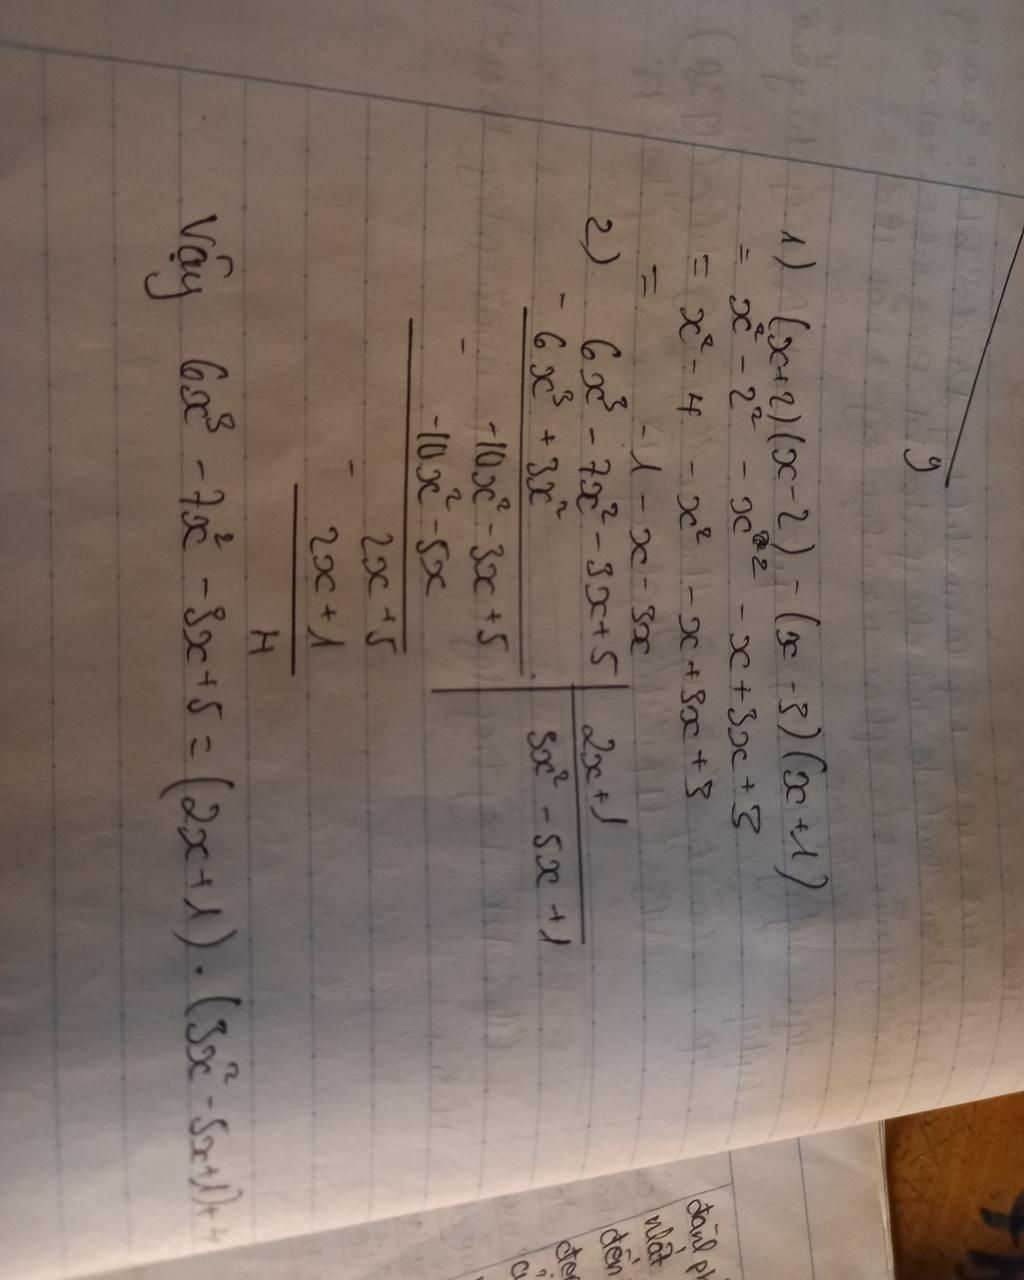 9
1) (x+2)(x-2) - (x-3)(x+1)
= x² - 2² - x² - x + 3x + 3
= x² - 4 - x² - x + 3x + 3
= -1 - x - 3x
2) 6x³ - 7x² - 3x + 5 | 2x+1
- 6x³ + 3x² | 3x² - 5x + 1
-10x² - 3x + 5
- -10x² - 5x
2x + 5
- 2x + 1
4
Vậy 6x³ - 7x² - 3x + 5 = (2x+1) . (3x² - 5x + 1) + 4
nhất
đến